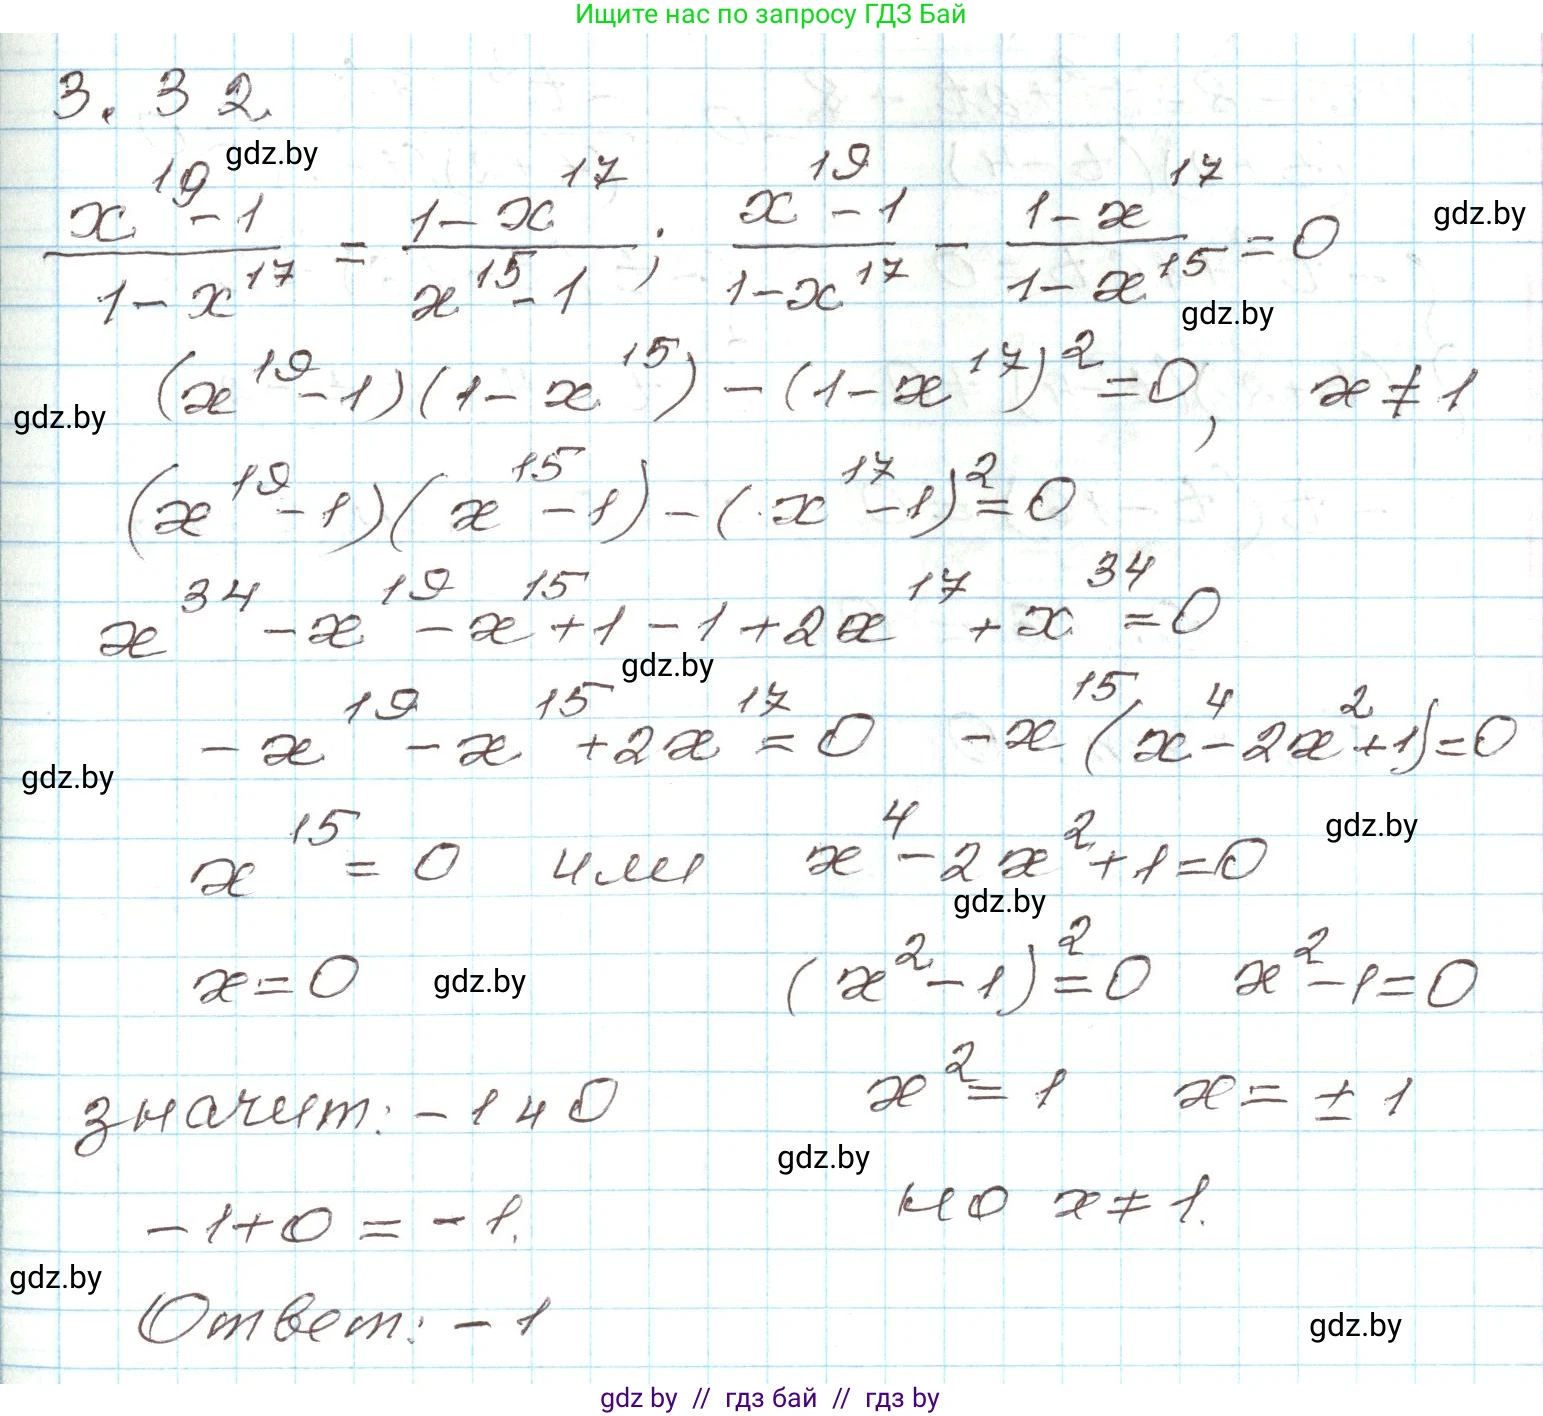 Ищите нас по запросу ГДЗ Бай
3.32
gdz.by
(x^19 - 1)/(1 - x^17) = (1 - x^17)/(x^15 - 1); (x^19 - 1)/(1 - x^17) - (1 - x^17)/(1 - x^15) = 0
gdz.by
gdz.by
(x^19 - 1)(1 - x^15) - (1 - x^17)^2 = 0, x ≠ 1
gdz.by
(x^19 - 1)(x^15 - 1) - (x^17 - 1)^2 = 0
x^34 - x^19 - x^15 + 1 - 1 + 2x^17 + x^34 = 0
gdz.by
-x^19 - x^15 + 2x^17 = 0 -x^15(x^4 - 2x^2 + 1) = 0
gdz.by
gdz.by
x^15 = 0 или x^4 - 2x^2 + 1 = 0
gdz.by
x = 0 gdz.by (x^2 - 1)^2 = 0 x^2 - 1 = 0
значит: -1 и 0 x^2 = 1 x = ± 1
gdz.by
-1 + 0 = -1. но x ≠ 1.
gdz.by
Ответ: -1
gdz.by
gdz by // гдз бай // гдз by